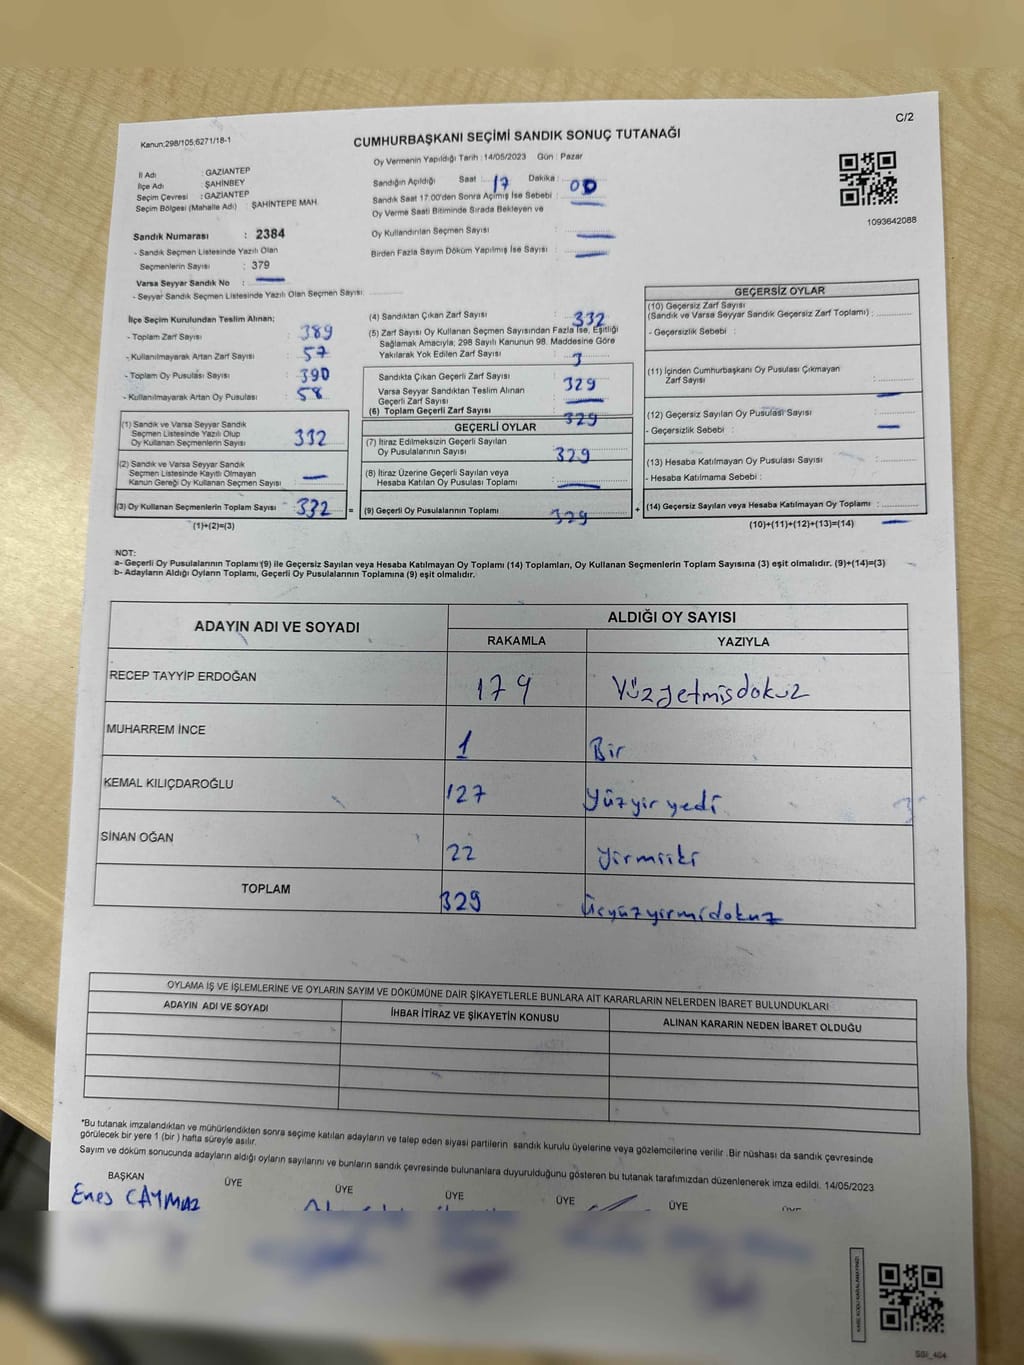 C/2
Kanun:298/105;6271/18-1
CUMHURBAŞKANI SEÇİMİ SANDIK SONUÇ TUTANAĞI
Oy Vermenin Yapıldığı Tarih : 14/05/2023 Gün : Pazar
İl Adı : GAZİANTEP
İlçe Adı : ŞAHİNBEY
Seçim Çevresi : GAZİANTEP
Seçim Bölgesi (Mahalle Adı) : ŞAHİNTEPE MAH.
Sandık Numarası : 2384
- Sandık Seçmen Listesinde Yazılı Olan
Seçmenlerin Sayısı : 379
Varsa Seyyar Sandık No : —
- Seyyar Sandık Seçmen Listesinde Yazılı Olan Seçmen Sayısı:
Sandığın Açıldığı Saat : 17 Dakika : 00
Sandık Saat 17:00'den Sonra Açılmış İse Sebebi : —
Oy Verme Saati Bitiminde Sırada Bekleyen ve
Oy Kullandırılan Seçmen Sayısı : —
Birden Fazla Sayım Döküm Yapılmış İse Sayısı : —
1093642088
İlçe Seçim Kurulundan Teslim Alınan;
- Toplam Zarf Sayısı : 389
- Kullanılmayarak Artan Zarf Sayısı : 57
- Toplam Oy Pusulası Sayısı : 390
- Kullanılmayarak Artan Oy Pusulası : 58
(1) Sandık ve Varsa Seyyar Sandık
Seçmen Listesinde Yazılı Olup
Oy Kullanan Seçmenlerin Sayısı : 332
(2) Sandık ve Varsa Seyyar Sandık
Seçmen Listesinde Kayıtlı Olmayan
Kanun Gereği Oy Kullanan Seçmen Sayısı : —
(3) Oy Kullanan Seçmenlerin Toplam Sayısı : 332 =
(1)+(2)=(3)
(4) Sandıktan Çıkan Zarf Sayısı : 332
(5) Zarf Sayısı Oy Kullanan Seçmen Sayısından Fazla İse, Eşitliği
Sağlamak Amacıyla; 298 Sayılı Kanunun 98. Maddesine Göre
Yakılarak Yok Edilen Zarf Sayısı : 3
Sandıkta Çıkan Geçerli Zarf Sayısı : 329
Varsa Seyyar Sandıktan Teslim Alınan
Geçerli Zarf Sayısı : —
(6) Toplam Geçerli Zarf Sayısı : 329
GEÇERLİ OYLAR
(7) İtiraz Edilmeksizin Geçerli Sayılan
Oy Pusulalarının Sayısı : 329
(8) İtiraz Üzerine Geçerli Sayılan veya
Hesaba Katılan Oy Pusulası Toplamı : —
(9) Geçerli Oy Pusulalarının Toplamı : 329 +
GEÇERSİZ OYLAR
(10) Geçersiz Zarf Sayısı
(Sandık ve Varsa Seyyar Sandık Geçersiz Zarf Toplamı) :
- Geçersizlik Sebebi :
(11) İçinden Cumhurbaşkanı Oy Pusulası Çıkmayan
Zarf Sayısı : —
(12) Geçersiz Sayılan Oy Pusulası Sayısı :
- Geçersizlik Sebebi : —
(13) Hesaba Katılmayan Oy Pusulası Sayısı :
- Hesaba Katılmama Sebebi :
(14) Geçersiz Sayılan veya Hesaba Katılmayan Oy Toplamı : —
(10)+(11)+(12)+(13)=(14)
NOT:
a- Geçerli Oy Pusulalarının Toplamı (9) ile Geçersiz Sayılan veya Hesaba Katılmayan Oy Toplamı (14) Toplamları, Oy Kullanan Seçmenlerin Toplam Sayısına (3) eşit olmalıdır. (9)+(14)=(3)
b- Adayların Aldığı Oyların Toplamı, Geçerli Oy Pusulalarının Toplamına (9) eşit olmalıdır.
ADAYIN ADI VE SOYADI ALDIĞI OY SAYISI
RAKAMLA YAZIYLA
RECEP TAYYİP ERDOĞAN 179 Yüzyetmişdokuz
MUHARREM İNCE 1 Bir
KEMAL KILIÇDAROĞLU 127 Yüzyir yedi
SİNAN OĞAN 22 yirmiiki
TOPLAM 329 Üçyüzyirmidokuz
OYLAMA İŞ VE İŞLEMLERİNE VE OYLARIN SAYIM VE DÖKÜMÜNE DAİR ŞİKAYETLERLE BUNLARA AİT KARARLARIN NELERDEN İBARET BULUNDUKLARI
ADAYIN ADI VE SOYADI İHBAR İTİRAZ VE ŞİKAYETİN KONUSU ALINAN KARARIN NEDEN İBARET OLDUĞU
*Bu tutanak imzalandıktan ve mühürlendikten sonra seçime katılan adayların ve talep eden siyasi partilerin sandık kurulu üyelerine veya gözlemcilerine verilir .Bir nüshası da sandık çevresinde
görülecek bir yere 1 (bir ) hafta süreyle asılır.
Sayım ve döküm sonucunda adayların aldığı oyların sayılarını ve bunların sandık çevresinde bulunanlara duyurulduğunu gösteren bu tutanak tarafımızdan düzenlenerek imza edildi. 14/05/2023
BAŞKAN ÜYE ÜYE ÜYE ÜYE ÜYE
Enes CAYMAZ
SSI_404